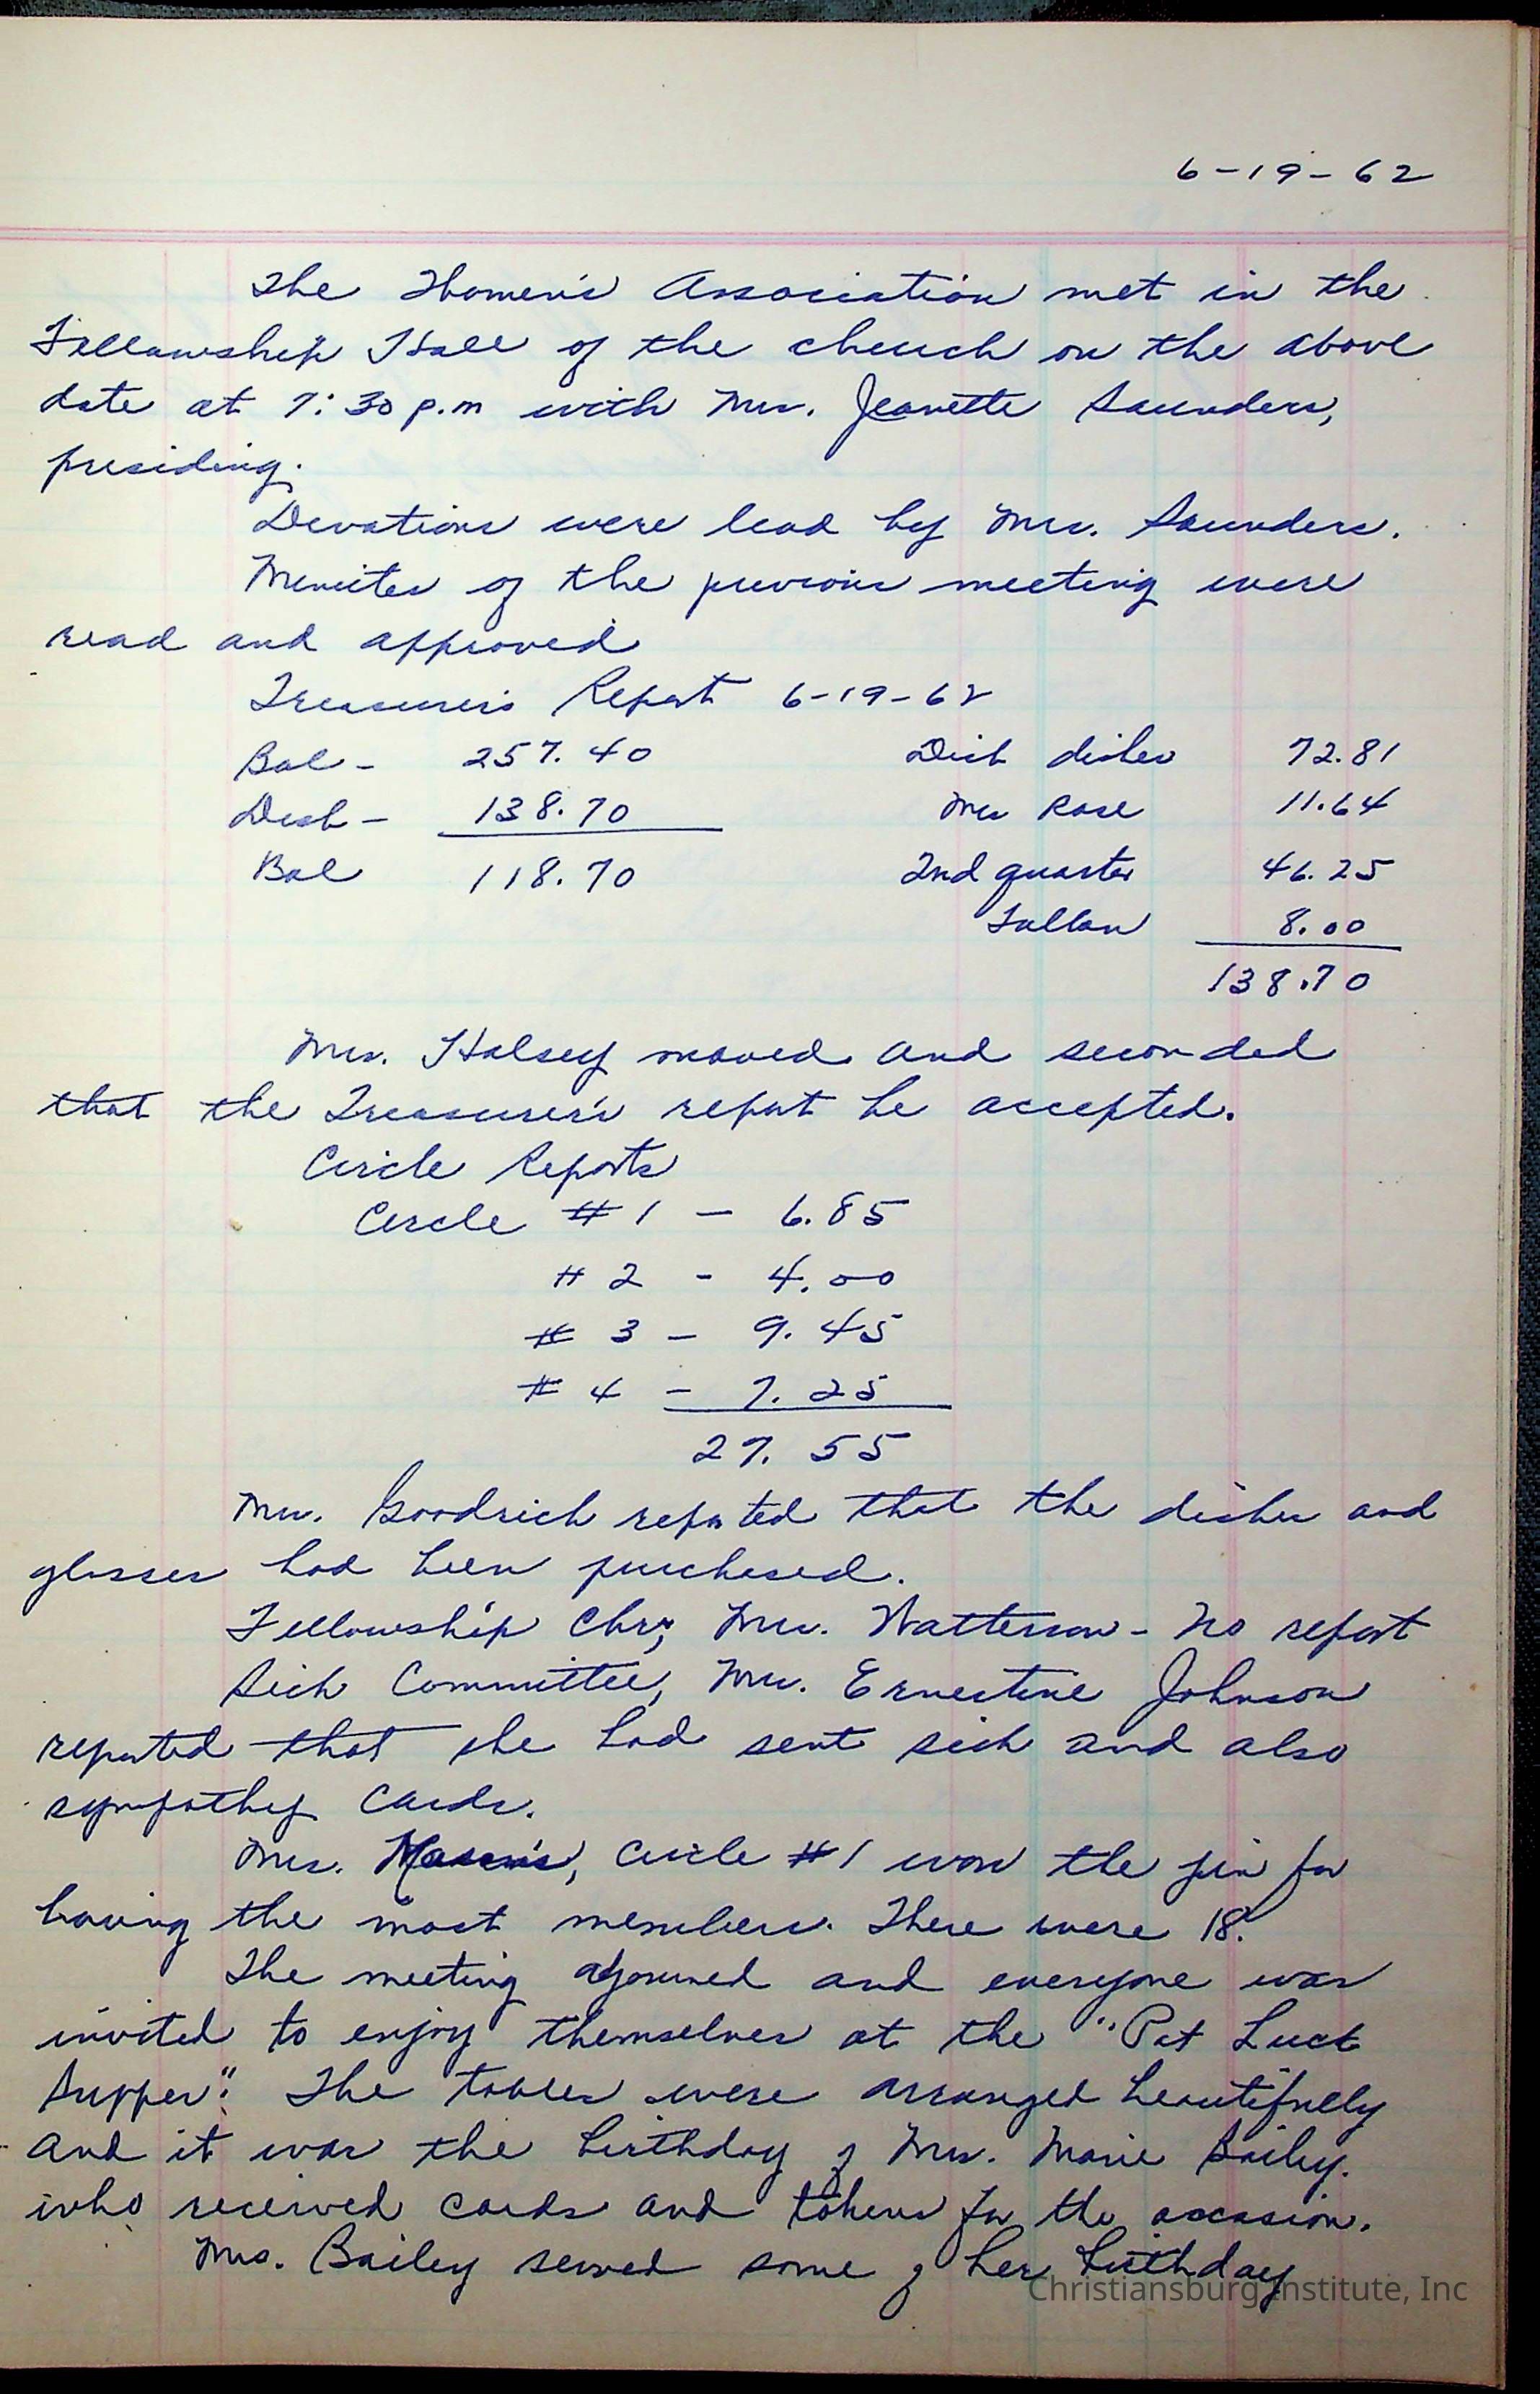 6-19-62
The Women's Association met in the
Fellowship Hall of the church on the above
date at 7:30 p.m with Mrs. Jeanette Saunders,
presiding.
Devotions were lead by Mrs. Saunders.
Minutes of the previous meeting were
read and approved
Treasurer's Report 6-19-62
Bal - 257.40 Dish dishes 72.81
Disb - 138.70 Mrs Rose 11.64
Bal 118.70 2nd quarter 46.25
8.00
138.70
Mrs. Halsey moved and seconded
that the Treasurer's report be accepted.
Circle Reports
Circle #1 - 6.85
#2 - 4.00
#3 - 9.45
#4 - 7.25
27.55
Mrs. Goodrich reported that the dishes and
glasses had been purchased.
Fellowship Chr; Mrs. Watterson - No report
Sick Committee, Mrs. Ernestine Johnson
reported that she had sent sick and also
sympathy cards.
Mrs. circle #1 won the pin for
having the most members. There were 18.
The meeting ajourned and everyone was
invited to enjoy themselves at the "Pot Luck
Supper". The tables were arranged beautifully
and it was the birthday of Mrs. Marie Bailey.
who received cards and tokens for the occasion.
Mrs. Bailey served some of her birthday
Christiansburg Institute, Inc